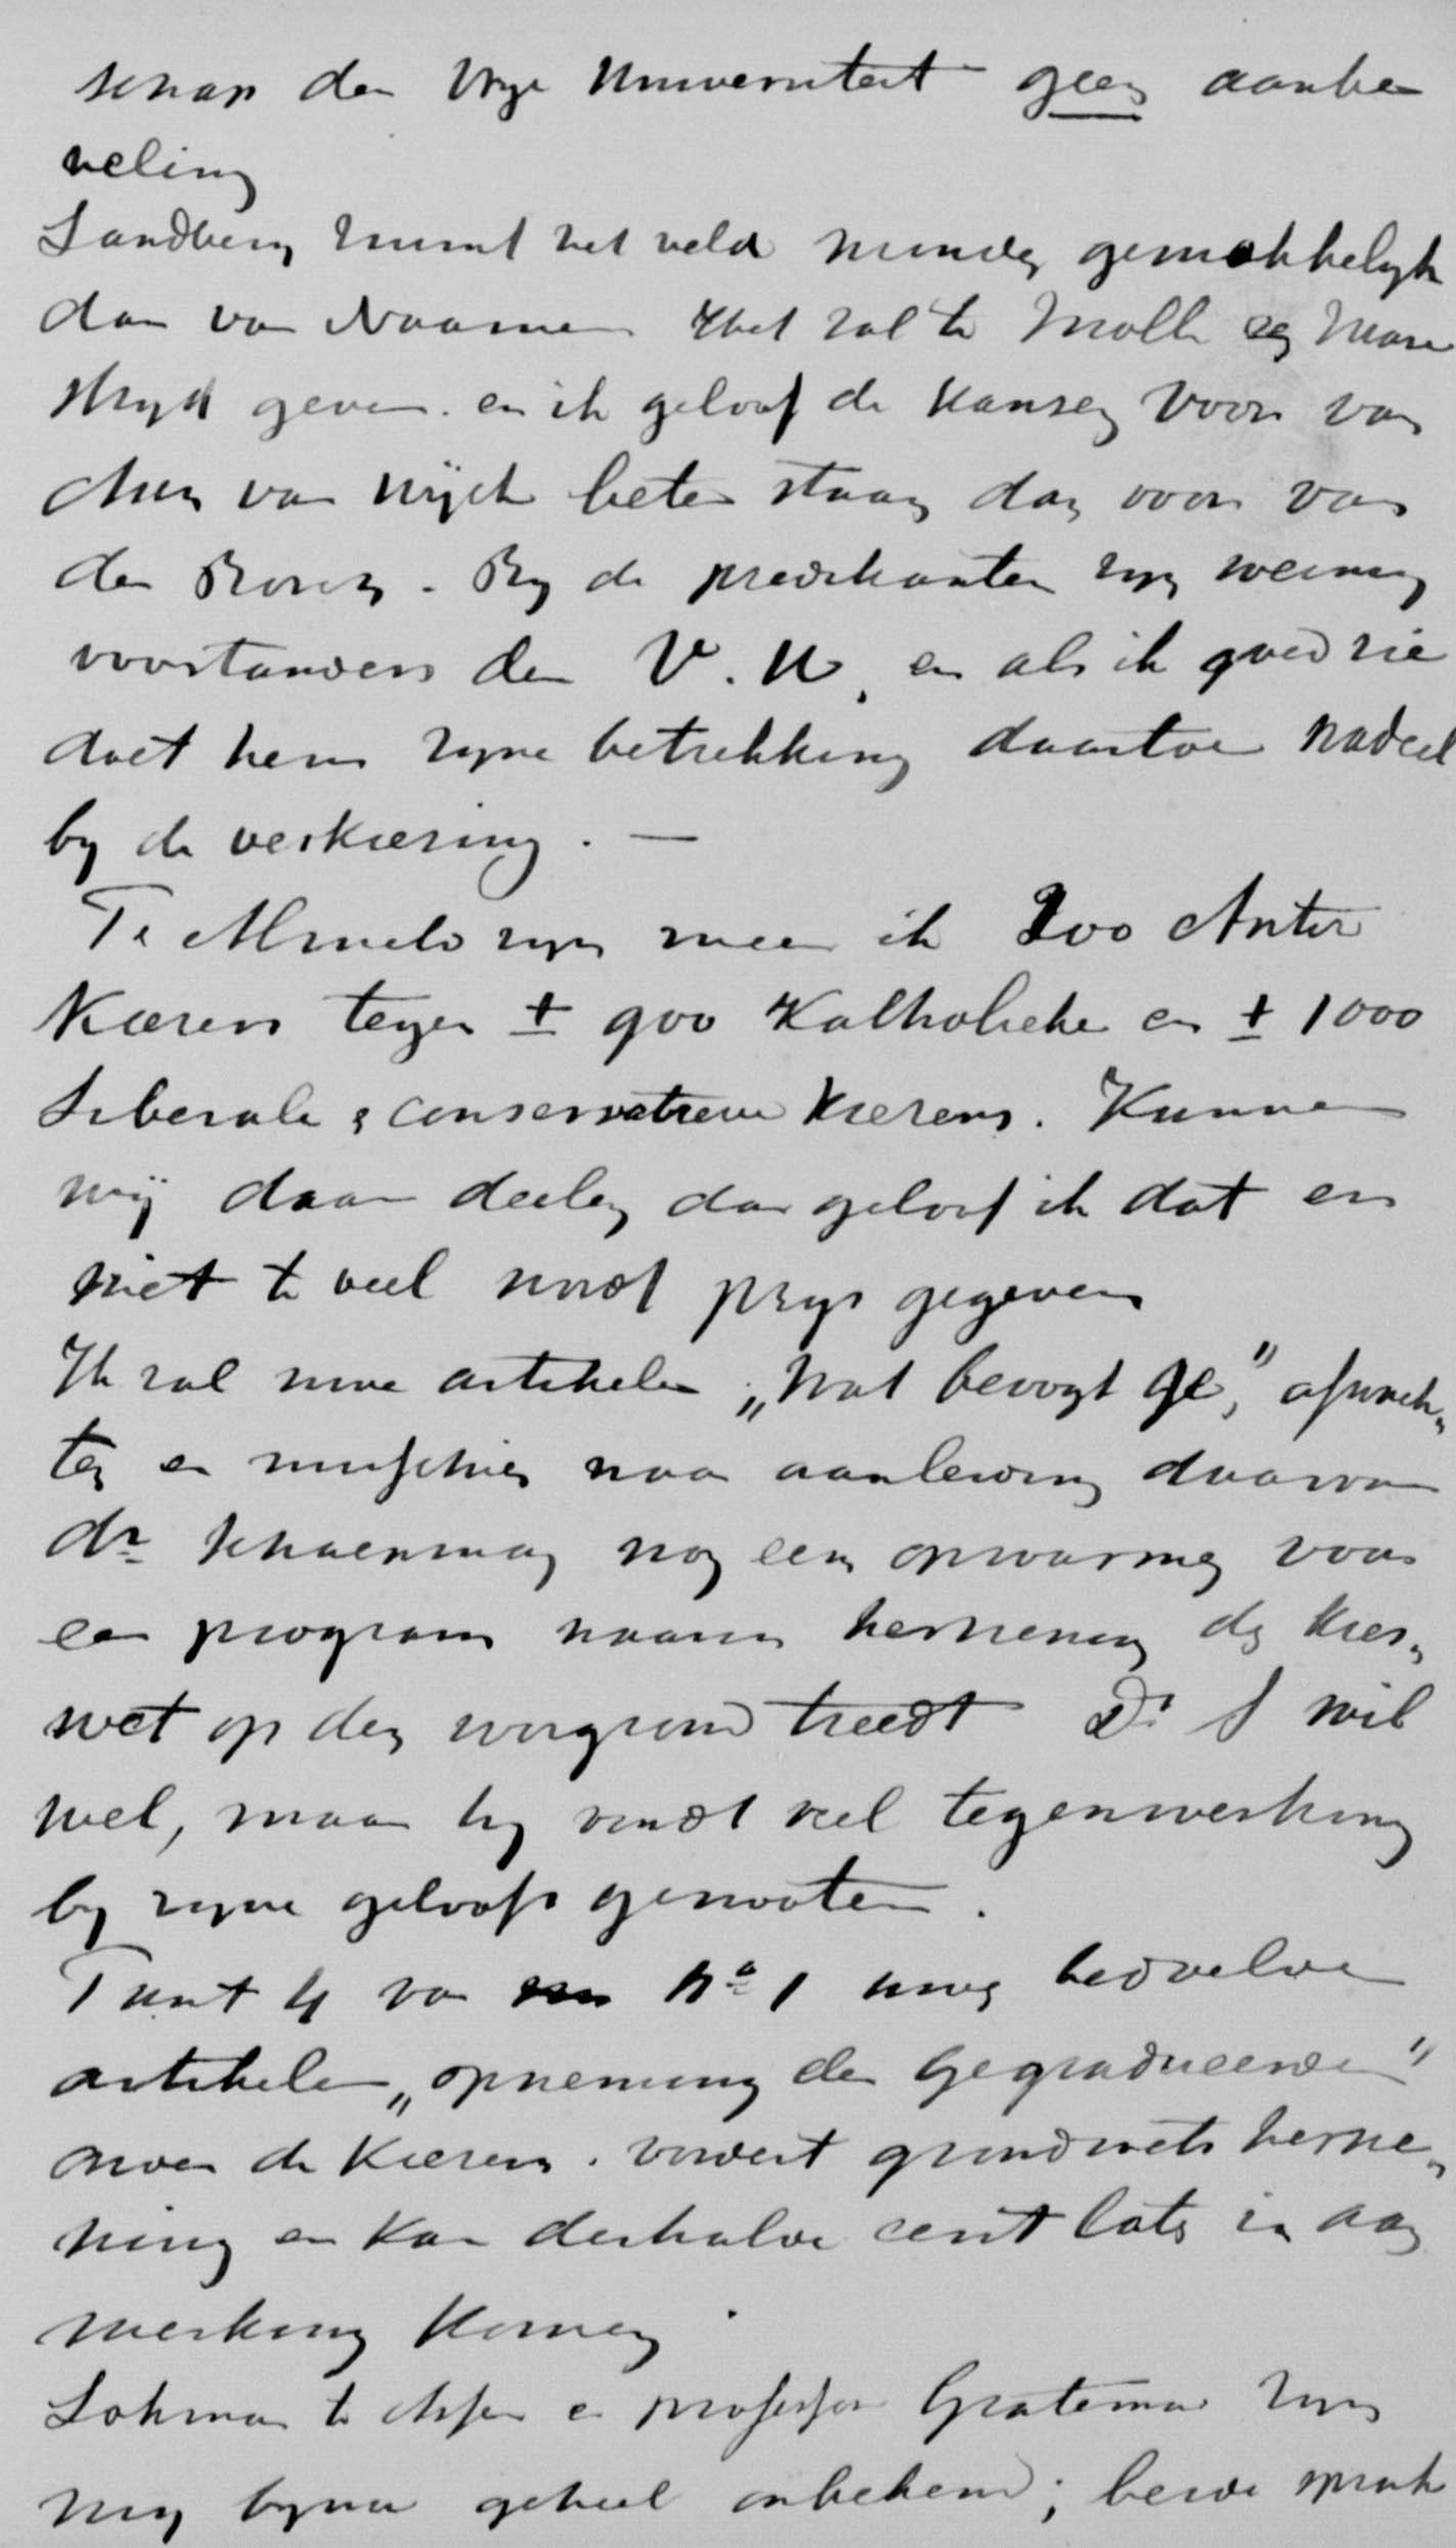 schap der Vrye Universiteit geen aanbe
veling
Sandberg ruimt het veld minder gemakkelyk
dan van Naamen Het zal te Zwolle een zware
stryd geven. en ik geloof de kansen voor van
Asch van Wijck beter staan dan voor van
den Bosch. By de predikanten zyn weinig
voorstanders der V. U. en als ik goed zie
doet hem zyne betrekking daartoe nadeel
by de verkiezing. —
Te Almelo zyn meen ik 200 Antir
Kiezers tegen ± 900 Katholieke en ± 1000
Liberale & conservatieve kiezers. Kunnen
wij daar deelen dan geloof ik dat er
niet te veel wordt prys gegeven
Ik zal uwe artikelen „Wat bevogt ge," afwach„
ten en misschien naar aanleiding daarvan
dr Schaepman nog een opwarming voor
een program waarin herziening der kies„
wet op den voorgrond treedt Dr S wil
wel, maar hy vindt veel tegenwerking
by zyne geloofs genooten.
Punt 4 van no 1 uwer bedoelde
artikelen „opneming der Gegradueerden"
onder de Kiezers. vordert grondwets herzie„
ning en kan derhalve eerst later in aan
merking komen.
Lohman te Assen en professor Gratama zyn
my byna geheel onbekend; beide sprak